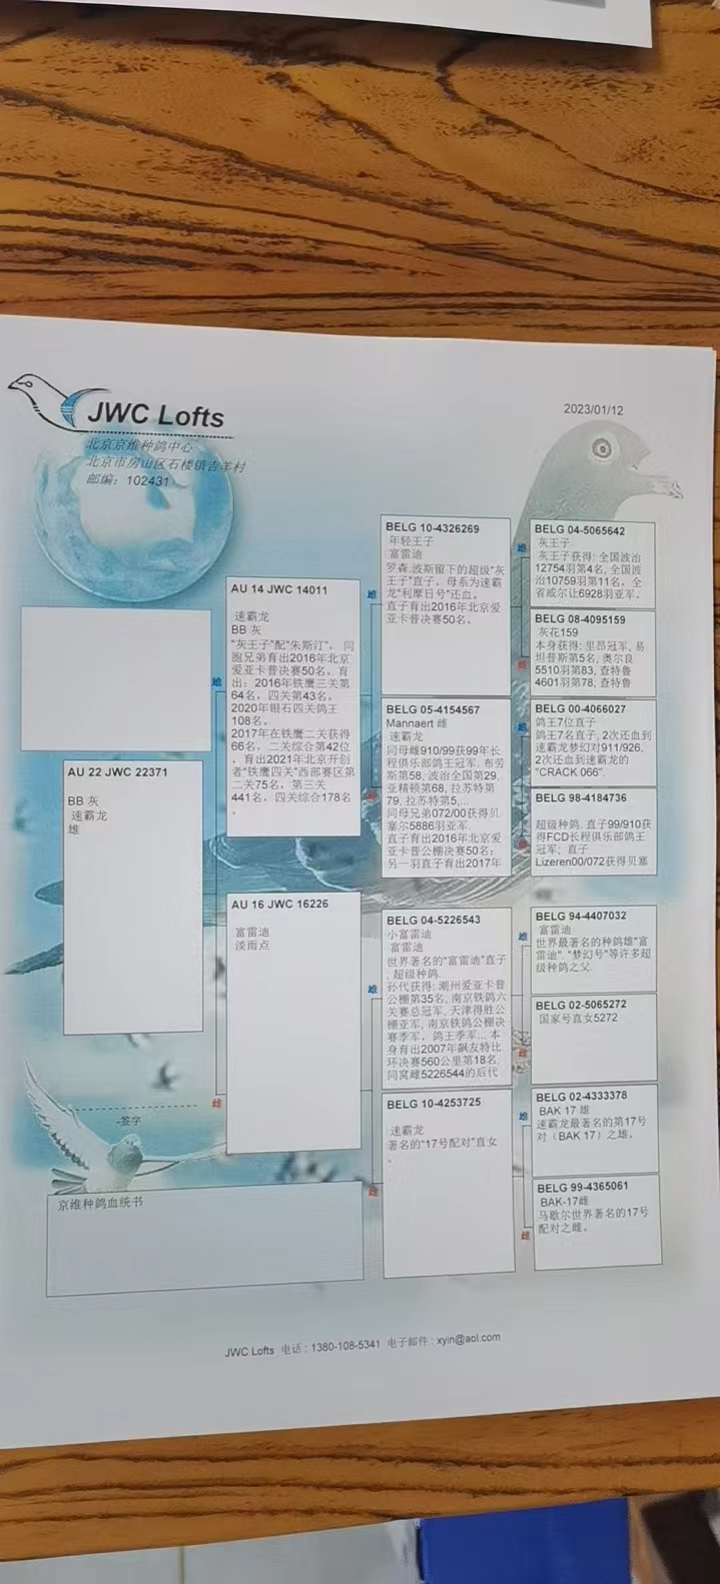 JWC Lofts
2023/01/12
北京京维种鸽中心
北京市房山区石楼镇吉羊村
邮编：102431
AU 22 JWC 22371
BB 灰
速霸龙
雄
雄
AU 14 JWC 14011
速霸龙
BB 灰
"灰王子"配"朱斯汀"， 同
胞兄弟育出2016年北京
爱亚卡普决赛50名。育
出：2016年铁鹰三关第
64名，四关第43名。
2020年银石四关鸽王
108名。
2017年在铁鹰二关获得
66名，二关综合第42位
，育出2021年北京开创
者"铁鹰四关"西部赛区第
二关75名，第三关
441名，四关综合178名
。
雌
AU 16 JWC 16226
富雷迪
淡雨点
雄
BELG 10-4326269
年轻王子
富雷迪
罗森.波斯留下的超级"灰
王子"直子，母系为速霸
龙"利摩日号"还血。
直子育出2016年北京爱
亚卡普决赛50名。
雌
BELG 05-4154567
Mannaert 雌
速霸龙
同母雌910/99获99年长
程俱乐部鸽王冠军, 布劳
斯第58, 波治全国第29,
亚精顿第68, 拉苏特第
79, 拉苏特第5,...
同母兄弟072/00获得贝
塞尔5886羽亚军.
直子育出2016年北京爱
亚卡普公棚决赛50名；
另一羽直子育出2017年
雄
BELG 04-5226543
小富雷迪
富雷迪
世界著名的"富雷迪"直子
, 超级种鸽.
孙代获得: 潮州爱亚卡普
公棚第35名, 南京铁鸽六
关赛总冠军, 天津得胜公
棚亚军, 南京铁鸽公棚决
赛季军，鸽王季军... 本
身育出2007年飙友特比
环决赛560公里第18名.
同窝雌5226544的后代
雌
BELG 10-4253725
速霸龙
著名的"17号配对"直女
。
雄
BELG 04-5065642
灰王子
灰王子获得: 全国波治
12754羽第4名, 全国波
治10759羽第11名，全
省威尔让6928羽亚军.
雌
BELG 08-4095159
灰花159
本身获得: 里昂冠军, 易
坦普斯第5名, 奥尔良
5510羽第83, 查特鲁
4601羽第78, 查特鲁
雄
BELG 00-4066027
鸽王7位直子
鸽王7名直子, 2次还血到
速霸龙梦幻对911/926,
2次还血到速霸龙的
"CRACK 066".
雌
BELG 98-4184736
超级种鸽, 直子99/910获
得FCD长程俱乐部鸽王
冠军；直子
Lizeren00/072获得贝塞
雄
BELG 94-4407032
富雷迪
世界最著名的种鸽雄"富
雷迪". "梦幻号"等许多超
级种鸽之父.
雌
BELG 02-5065272
国家号直女5272
雄
BELG 02-4333378
BAK 17 雄
速霸龙最著名的第17号
对（BAK 17）之雄。
雌
BELG 99-4365061
BAK-17雌
马歇尔世界著名的17号
配对之雌。
-签字
京维种鸽血统书
JWC Lofts 电话 : 1380-108-5341 电子邮件 : xyin@aol.com